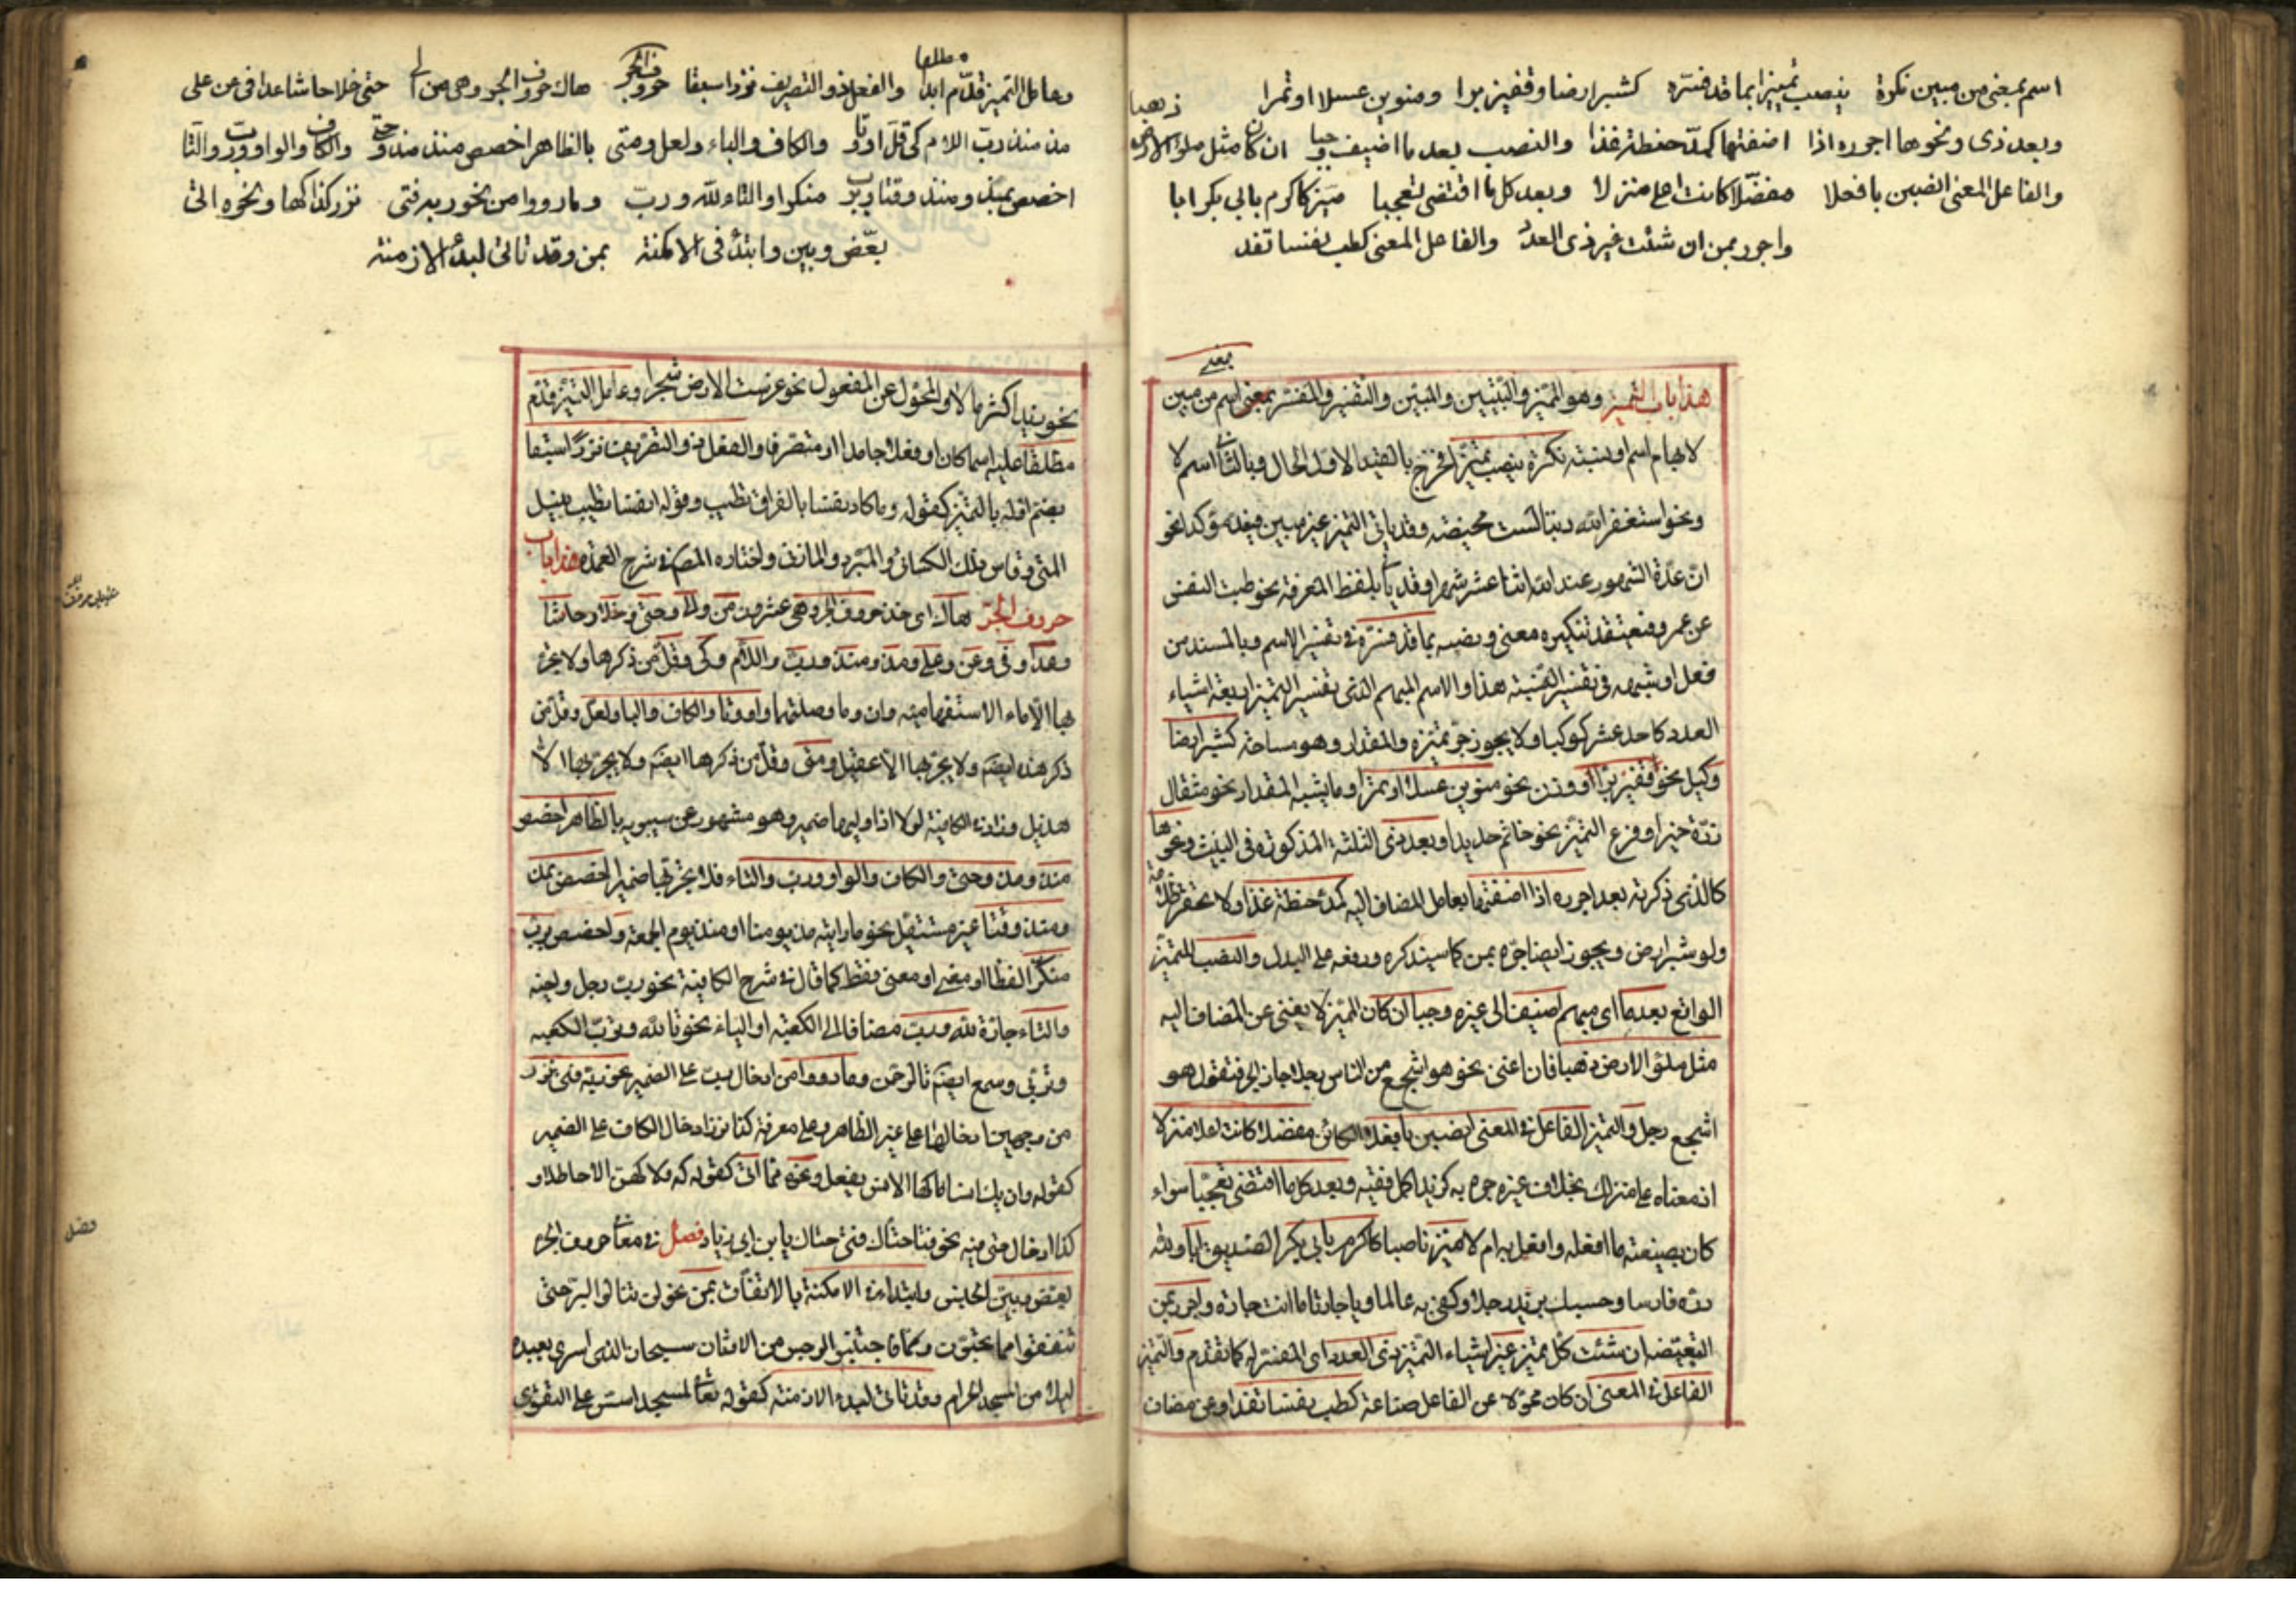 اسم بمعنى من مبين نكرة ينصب تمييزا بما قد فسره كشبر ارضا وقفيز برا ومنوين عسلا او تمرا
وبعد ذى ونحوها اجرره اذا اضفتها كمد حنطة غذا والنصب بعد ما اضيف وجبا ان كان مثل ملء الارض ذهبا
والفاعل المعنى انصبن بافعلا مفضلا كانت اعلى منزلا وبعد كل ما اقتضى تعجبا ميز كاكرم بابي بكر ابا
واجرر بمن ان شئت غير ذى العدد والفاعل المعنى كطب نفسا تفد
معنى
هذا باب التمييز وهو المميز والتبيين والمبين والتفسير والمفسر بمعنى اسم من مبين
لابهام اسم او نسبة نكرة ينصب تمييزا فخرج بالقيد الاول الحال وبالثاني اسم لا
ونحو استغفر الله ذنبا لست محيصه وقد ياتي التمييز غير مبين فيعد مؤكدا نحو
ان عدة الشهور عند الله اثنا عشر شهرا وقد ياتي بلفظ المعرفة نحو طبت النفس
عن عمرو فيعتقد تنكيره معنى ونصبه بما قد فسره في تفسير الاسم وبالمسند من
فعل او شبهه في تفسير النسبة هذا والاسم المبهم الذى يفسره التمييز اربعة اشياء
العدد كاحد عشر كوكبا ولا يجوز جر تمييزه والمقدار وهو مساحة كشبر ارضا
وكيل نحو قفيز برا او وزن نحو منوين عسلا او تمرا وما يشبه المقدار نحو مثقال
ذرة خيرا وفرع التمييز نحو خاتم حديدا وبعد ذى الثلثة المذكورة في البيت ونحوها
كالذى ذكرته بعد اجرره اذا اضفتها بعامل المضاف اليه كمد حنطة غذا ولا تحقر ظلامة
ولو شبر ارض ويجوز ايضا جره بمن كما سيذكره ورفعه على البدل والنصب للتمييز
الواقع بعد ما اى مبهم اضيف الى غيره وجبا ان كان المميز لا يغنى عن المضاف اليه
مثل ملئ الارض ذهبا فان اغنى نحو هو اشجع من الناس رجلا جاز الجر فتقول هو
اشجع رجل والتمييز الفاعل في المعنى انصبن بافعلا الكائن مفضلا كانت اعلا منزلا
اذ معناه علا منزلك بخلاف غيره جره به كزيد اكمل فقيه وبعد كل ما اقتضى تعجبا سواء
كان بصيغته ما افعله وافعل به ام لا ميز ناصبا كاكرم بابي بكر الصديق ابا ولله
دره فارسا وحسبك بزيد رجلا وكفى به عالما ويا جارتا ما انت جارة واجرر بمن
التبعيضه ان شئت كل مميز غير اشياء التمييز ذى العدد اى المفسر له كما تقدم والتمييز
الفاعل في المعنى ان كان محولا عن الفاعل صناعة كطب نفسا تفد او عن مضاف
وعامل التمييز قدم مطلقا ابدا والفعل ذو التصريف نزرا سبقا حروف الجر هاك حروف الجر وهى من الى حتى خلا حاشا عدا فى عن على
مذ منذ رب اللام كى قل او وتا والكاف والباء ولعل ومتى بالظاهر اخصص منذ مذ وحتى والكاف والواو ورب والتا
اخصص بمذ ومنذ وقتا وبرب منكرا والتاء لله ورب وما رووا من نحو ربه فتى نزر كذا كها ونحوه اتى
بعض وبين وابتدئ فى الامكنة بمن وقد تاتى لبدء الازمنة
نحو زيد اكثر مالا والمحول عن المفعول نحو غرست الارض شجرا وعامل التمييز قدم
مطلقا عليه اسما كان او فعلا جامدا او متصرفا والفعل ذو التصريف نزرا سبقا
بضم اوله بالتمييز كقوله وما كاد نفسا بالفراق تطيب وقوله انفسا تطيب بنيل
المنى وقاس ذلك الكسائى والمبرد والمازنى واختاره المص في شرح العمدة هذا باب
حروف الجر هاك اى خذ حروف الجر وهى عشرون من والى وحتى وخلا وحاشا
وعدا وفى وعن وعلى ومذ ومنذ ورب واللام وكى وقل من ذكرها ولا يجر
بها الا ما الاستفهاميه وان وما وصلتهما واو وتا والكاف والبا ولعل وقل من
ذكر هذه ايضا ولا يجر بها الا عقيل ومتى وقل من ذكرها ايضا ولا يجر بها الا
هذيل وزاد في الكافية لولا اذا وليها ضمير وهو مشهور عن سيبويه بالظاهر اخصص
منذ ومذ وحتى والكاف والواو ورب والتاء فلا يجر بها ضميرا واخصص بمذ
ومنذ وقتا غير مستقبل نحو ما رايته مذ يومنا او منذ يوم الجمعة واخصص برب
منكرا لفظا او معنى او معنى فقط كما قال في شرح الكافية نحو رب رجل واخيه
والتاء جارة لله ورب مضافا الى الكعبة او الياء نحو تالله وترب الكعبه
وتربى وسمع ايضا تالرحمن وما رووا من ادخال رب على الضمير نحو ربه فتى نزر
من وجهين ادخالها على غير الظاهر وعلى معرفة كذا نزر ادخال الكاف على الضمير
كقوله وان يك انسا ما كها الانس يفعل ونحوه مما اتى كقوله كه ولا كهن الا حاظلا و
كذا ادخال حتى عليه نحو فتا حتاك فتى حتاك يا بن ابى زياد فصل في معانى حروف الجر
بعض وبين الجنس وابتدئ في الامكنة بالاتفاق بمن نحو لن تنالوا البر حتى
تنفقوا مما تحبون فاجتنبوا الرجس من الاوثان سبحان الذى اسرى بعبده
ليلا من المسجد الحرام وقد تاتى لبدء الازمنة كقوله تعالى لمسجد اسس على التقوى
فصل